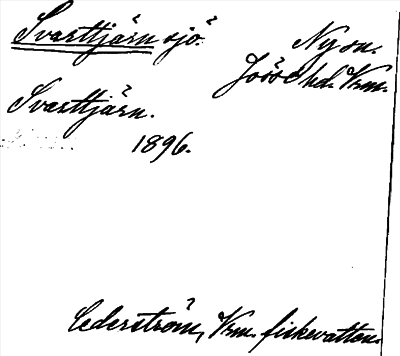 Svarttjärn sjö.
Ny sn.
Jösse hd. Vrm.
Svarttjärn.
1896.
Cederström, Vrm. fiskevatten.